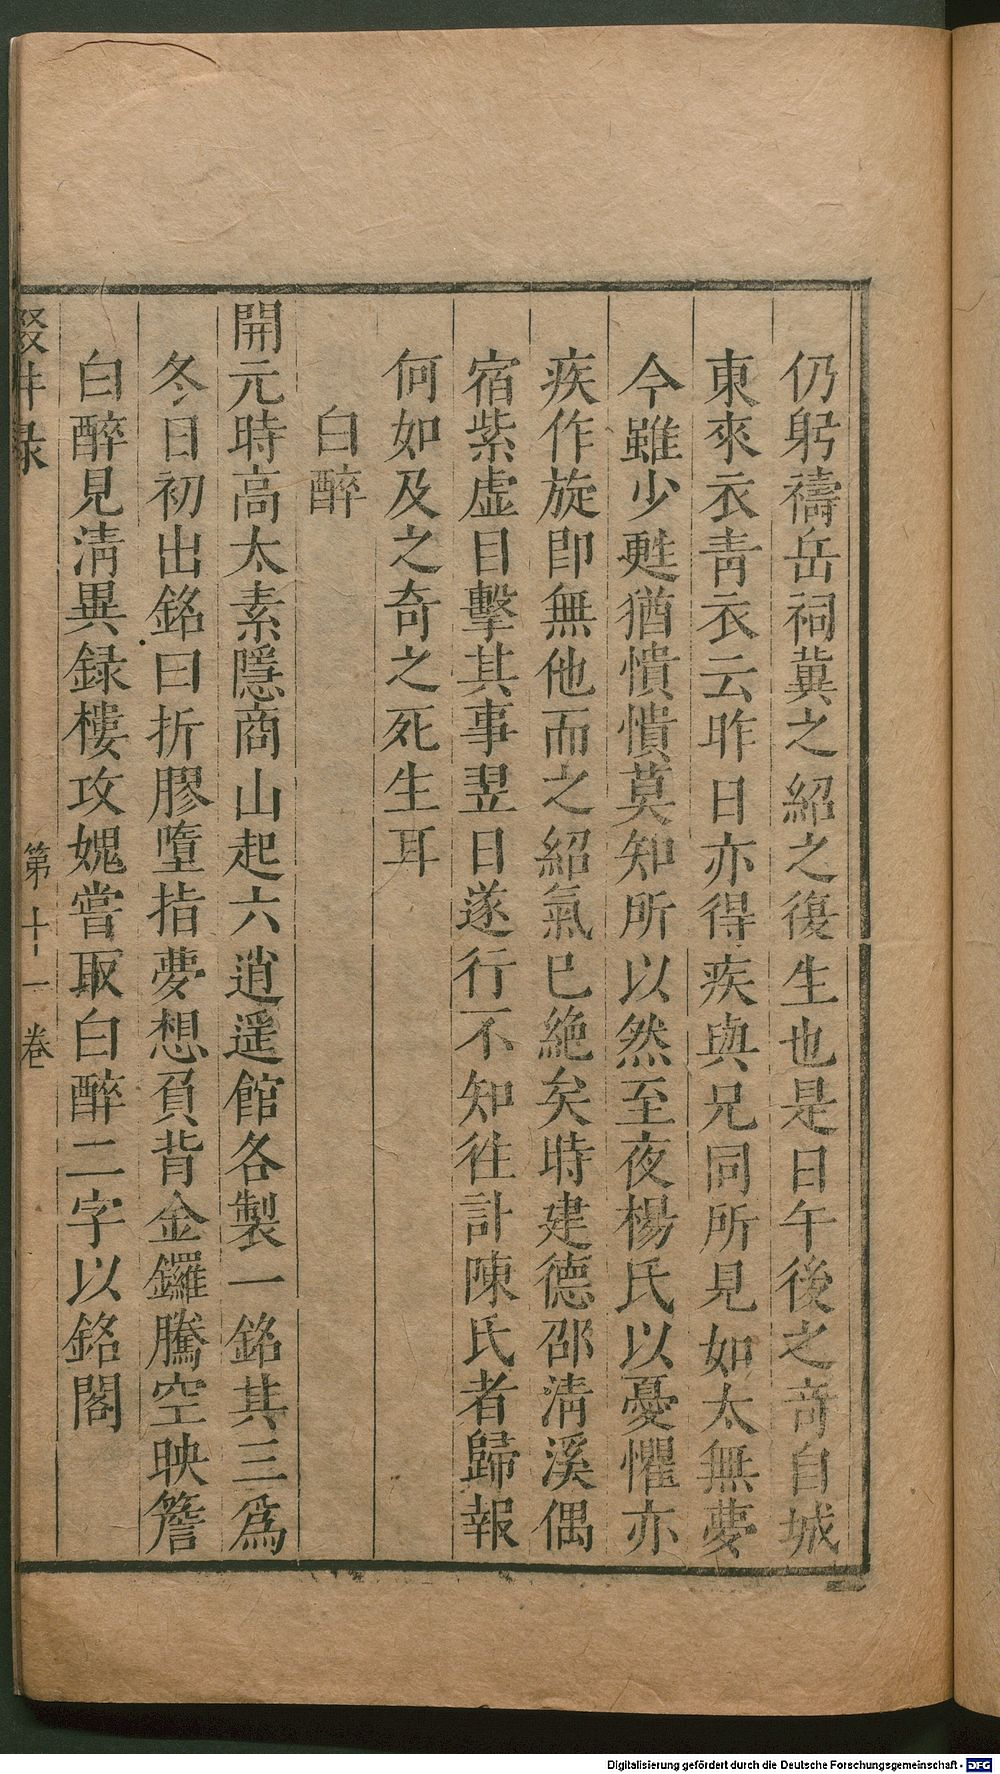 仍躬禱岳祠冀之紹之復生也是日午後之竒自城
東來衣青衣云昨日亦得疾與兄同所見如太無夢
今雖少甦猶憒憒莫知所以然至夜楊氏以憂懼亦
疾作旋即無他而之紹氣已絶矣時建德邵淸溪偶
宿紫虚目擊其事翌日遂行不知徃計陳氏者歸報
何如及之奇之死生耳
白醉
開元時高太素隱商山起六逍遥館各製一銘其三爲
冬日初出銘曰折膠墮指夢想負背金鑼騰空映簷
白醉見淸異録樓攻媿嘗取白醉二字以銘閣
輟耕録
第十一卷
Digitalisierung gefördert durch die Deutsche Forschungsgemeinschaft - DFG